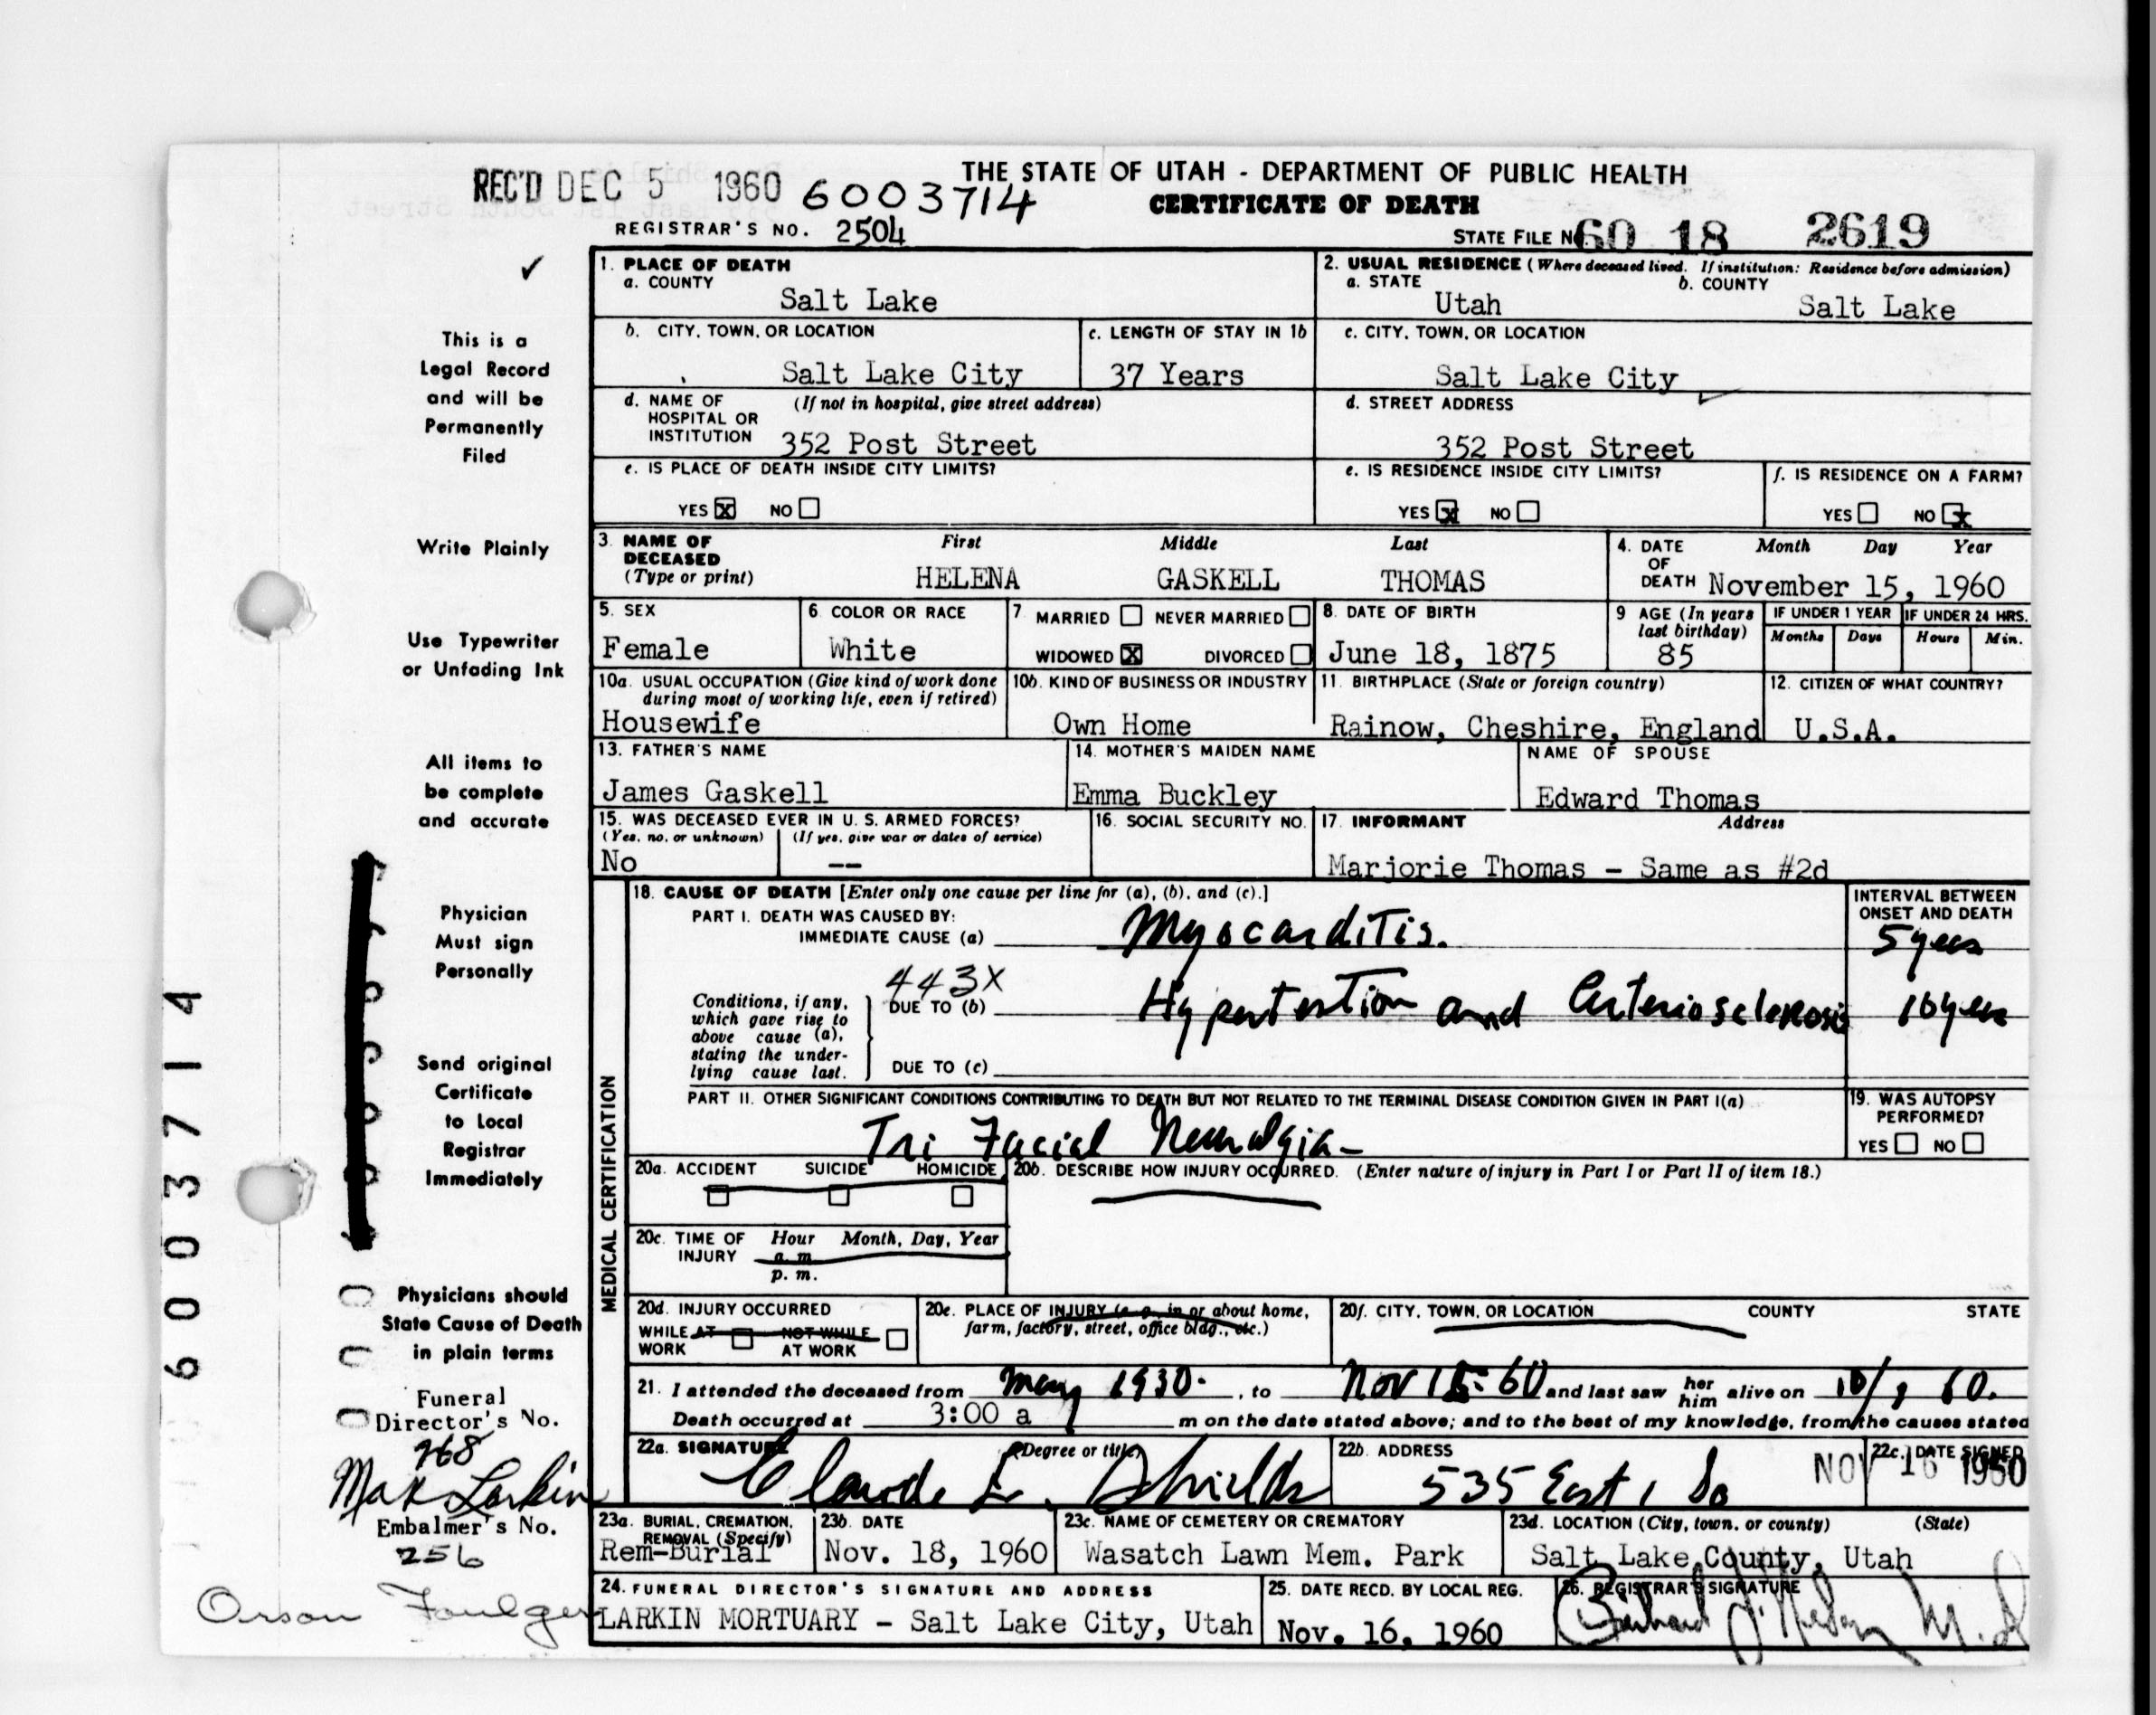 REC'D DEC 5 1960 6003714
THE STATE OF UTAH - DEPARTMENT OF PUBLIC HEALTH
CERTIFICATE OF DEATH
REGISTRAR'S NO. 2504
STATE FILE NO. 60 18 2619
This is a
Legal Record
and will be
Permanently
Filed
Write Plainly
Use Typewriter
or Unfading Ink
All items to
be complete
and accurate
Physician
Must sign
Personally
Send original
Certificate
to Local
Registrar
Immediately
Physicians should
State Cause of Death
in plain terms
Funeral
Director's No.
768
Max Larkin
Embalmer's No.
256
Orson Foulger
6003714
1. PLACE OF DEATH
a. COUNTY
Salt Lake
2. USUAL RESIDENCE (Where deceased lived. If institution: Residence before admission)
a. STATE b. COUNTY
Utah Salt Lake
b. CITY, TOWN, OR LOCATION
Salt Lake City
c. LENGTH OF STAY IN 1b
37 Years
c. CITY, TOWN, OR LOCATION
Salt Lake City
d. NAME OF (If not in hospital, give street address)
HOSPITAL OR
INSTITUTION 352 Post Street
d. STREET ADDRESS
352 Post Street
e. IS PLACE OF DEATH INSIDE CITY LIMITS?
YES X NO
e. IS RESIDENCE INSIDE CITY LIMITS?
YES X NO
f. IS RESIDENCE ON A FARM?
YES NO X
3. NAME OF
DECEASED
(Type or print)
First Middle Last
HELENA GASKELL THOMAS
4. DATE Month Day Year
OF
DEATH November 15, 1960
5. SEX
Female
6. COLOR OR RACE
White
7 MARRIED NEVER MARRIED
WIDOWED X DIVORCED
8. DATE OF BIRTH
June 18, 1875
9 AGE (In years
last birthday)
85
IF UNDER 1 YEAR
Months Days
IF UNDER 24 HRS.
Hours Min.
10a. USUAL OCCUPATION (Give kind of work done
during most of working life, even if retired)
Housewife
10b. KIND OF BUSINESS OR INDUSTRY
Own Home
11. BIRTHPLACE (State or foreign country)
Rainow, Cheshire, England
12. CITIZEN OF WHAT COUNTRY?
U.S.A.
13. FATHER'S NAME
James Gaskell
14. MOTHER'S MAIDEN NAME
Emma Buckley
NAME OF SPOUSE
Edward Thomas
15. WAS DECEASED EVER IN U. S. ARMED FORCES?
(Yes, no, or unknown) (If yes, give war or dates of service)
No --
16. SOCIAL SECURITY NO.
17. INFORMANT Address
Marjorie Thomas - Same as #2d
MEDICAL CERTIFICATION
18. CAUSE OF DEATH [Enter only one cause per line for (a), (b), and (c).]
INTERVAL BETWEEN
ONSET AND DEATH
PART I. DEATH WAS CAUSED BY:
IMMEDIATE CAUSE (a) Myocarditis. 5 years
443X
Conditions, if any,
which gave rise to
above cause (a),
stating the under-
lying cause last.
DUE TO (b) Hypertention and Arteriosclerosis 10 years
DUE TO (c)
PART II. OTHER SIGNIFICANT CONDITIONS CONTRIBUTING TO DEATH BUT NOT RELATED TO THE TERMINAL DISEASE CONDITION GIVEN IN PART I(a)
Tri Facial Neuralgia-
19. WAS AUTOPSY
PERFORMED?
YES NO
20a. ACCIDENT SUICIDE HOMICIDE
20b. DESCRIBE HOW INJURY OCCURRED. (Enter nature of injury in Part I or Part II of item 18.)
20c. TIME OF Hour Month, Day, Year
INJURY a. m.
p. m.
20d. INJURY OCCURRED
WHILE AT NOT WHILE
WORK AT WORK
20e. PLACE OF INJURY (e. g., in or about home,
farm, factory, street, office bldg., etc.)
20f. CITY, TOWN, OR LOCATION COUNTY STATE
21. I attended the deceased from May 1930. , to Nov 15-60 and last saw her him alive on
Death occurred at 3:00 a m on the date stated above; and to the best of my knowledge, from the causes stated
22a. SIGNATURE (Degree or title)
Claude L. Shields
22b. ADDRESS
535 East 1 So
22c. DATE SIGNED
NOV 16 1960
23a. BURIAL, CREMATION,
REMOVAL (Specify)
Rem-Burial
23b. DATE
Nov. 18, 1960
23c. NAME OF CEMETERY OR CREMATORY
Wasatch Lawn Mem. Park
23d. LOCATION (City, town, or county) (State)
Salt Lake County, Utah
24. FUNERAL DIRECTOR'S SIGNATURE AND ADDRESS
LARKIN MORTUARY - Salt Lake City, Utah
25. DATE RECD. BY LOCAL REG.
Nov. 16, 1960
26. REGISTRAR'S SIGNATURE